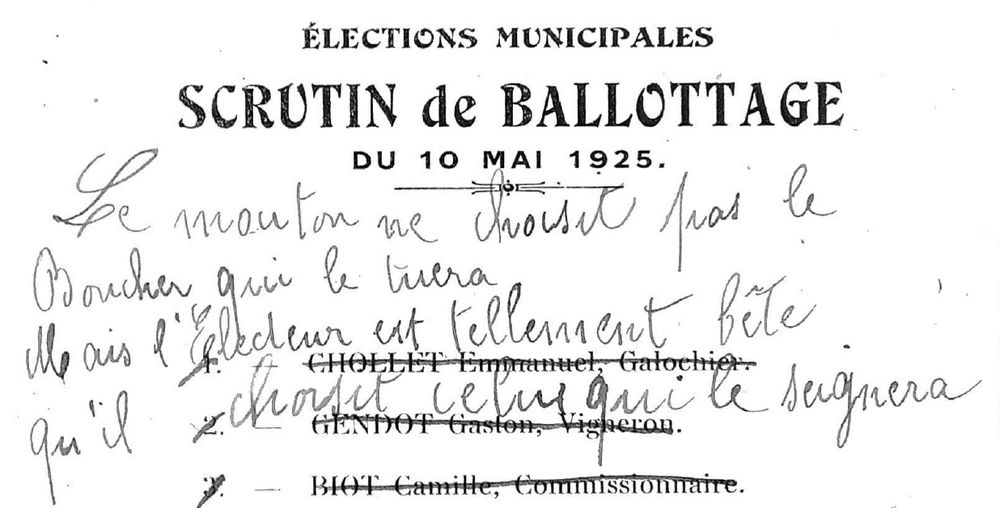 ÉLECTIONS MUNICIPALES
SCRUTIN de BALLOTTAGE
DU 10 MAI 1925.
Le mouton ne choisit pas le
Boucher qui le tuera
Mais l'Électeur est tellement bête
1. CHOLLET Emmanuel, Galochier.
qu'il choisit celui qui le saignera
2. — GENDOT Gaston, Vigneron.
3. — BIOT Camille, Commissionnaire.